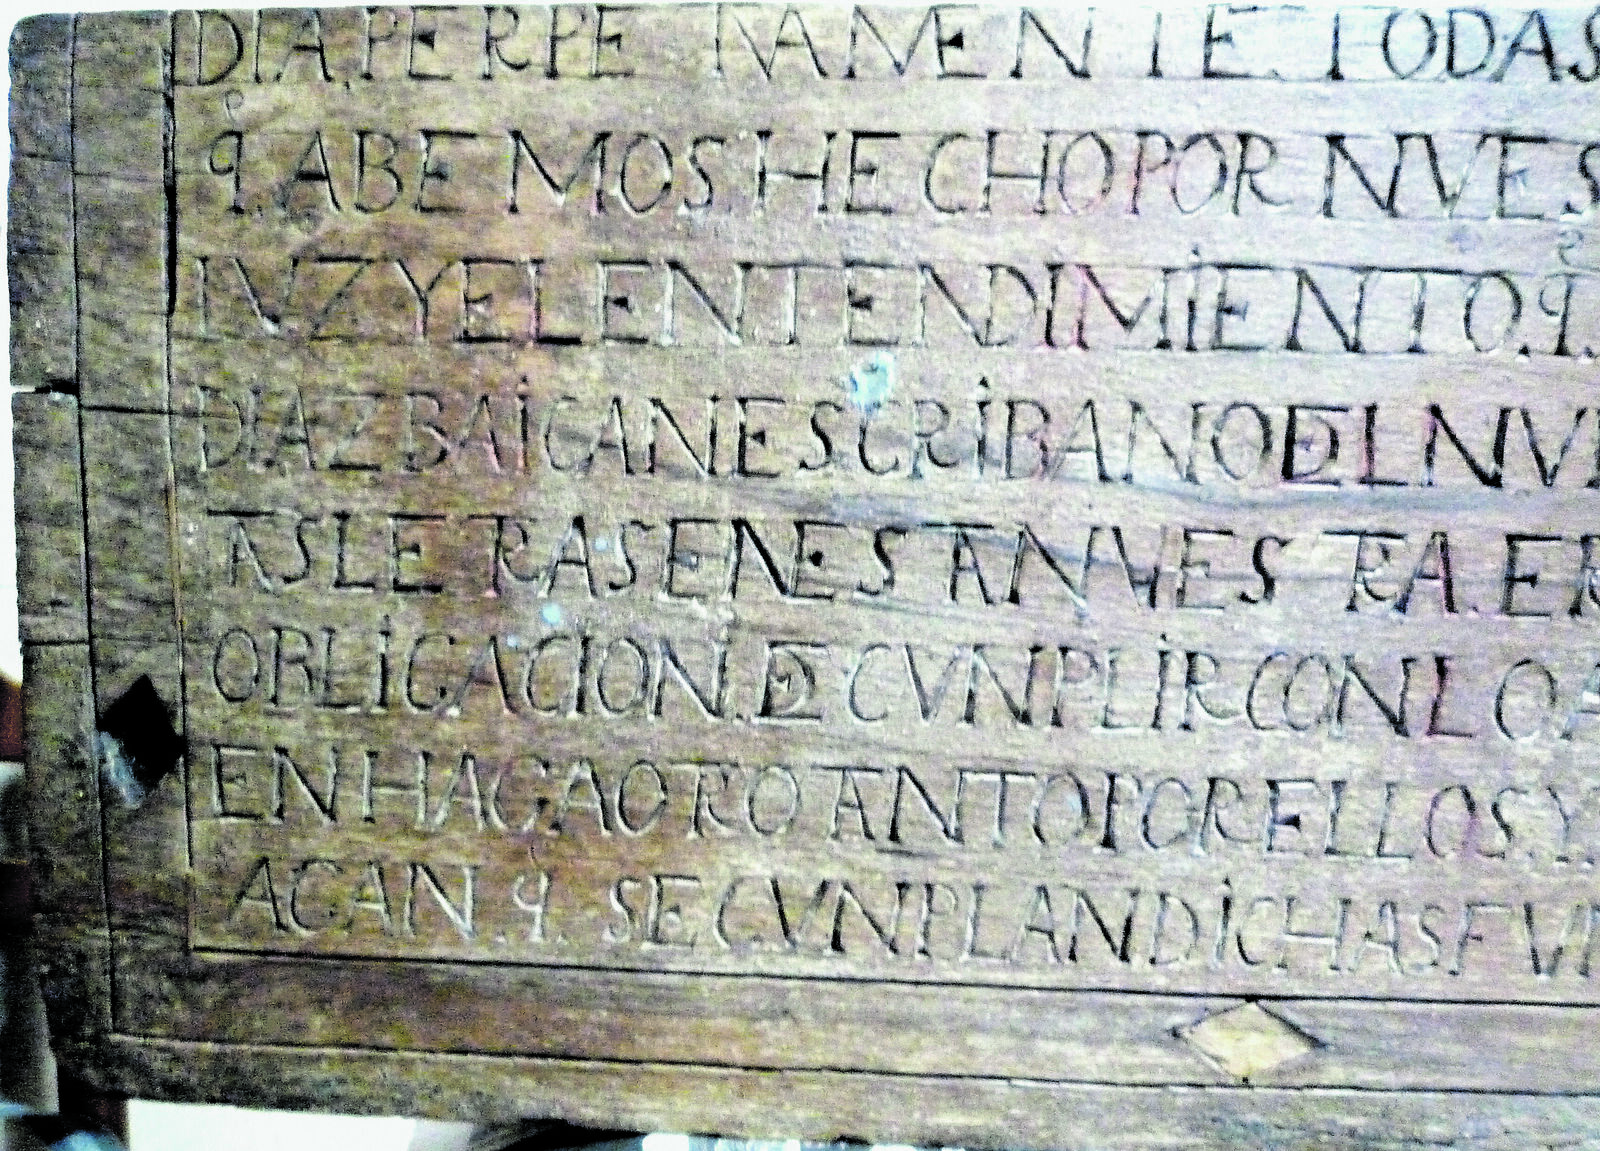 DIA PERPETVAMENTE. TODAS
q̊ ABEMOS HECHO POR NVES
IVZ Y EL ENTENDIMIENTO. q̊.
DIAZ BAICAN ESCRIBANO DEL NV
TAS LETRAS EN ESTA NVESTRA. ER
OBLIGACION. DE CVNPLIR CON LO A
EN HAGA OTRO TANTO POR ELLOS. Y.
AGAN. q̊. SE CVNPLAN DICHAS FV